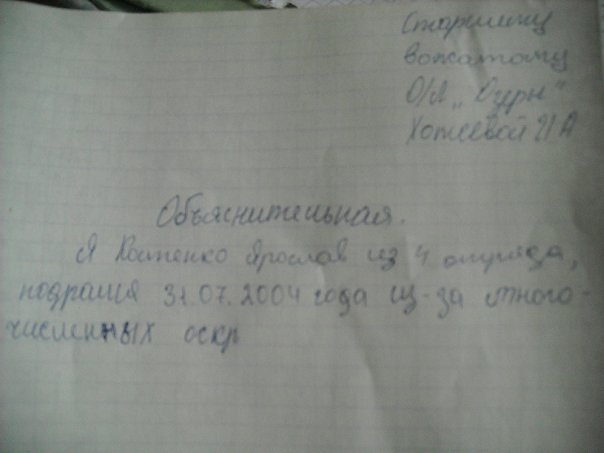 Старшему
вожатому
О/Л „Озеры"
Хотеевой И А
Объяснительная.
Я Костенко Ярослав из 4 отряда,
подрался 31.07.2004 года из-за много-
численных оскр